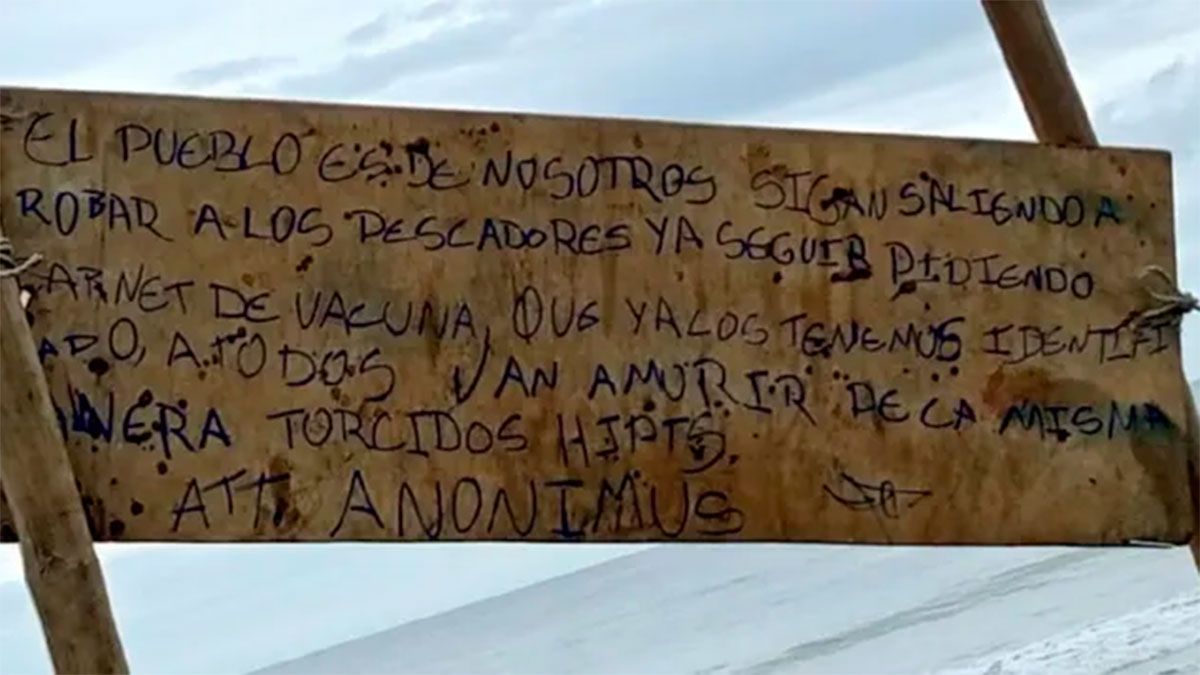 EL PUEBLO ES DE NOSOTROS SIGAN SALIENDO A
ROBAR A LOS PESCADORES Y A SEGUIR PIDIENDO
CARNET DE VACUNA, QUE YA LOS TENEMOS IDENTIFI
ADO, A TODOS VAN AMURIR DE LA MISMA
ANERA TORCIDOS HIPTS.
ATT ANONIMUS